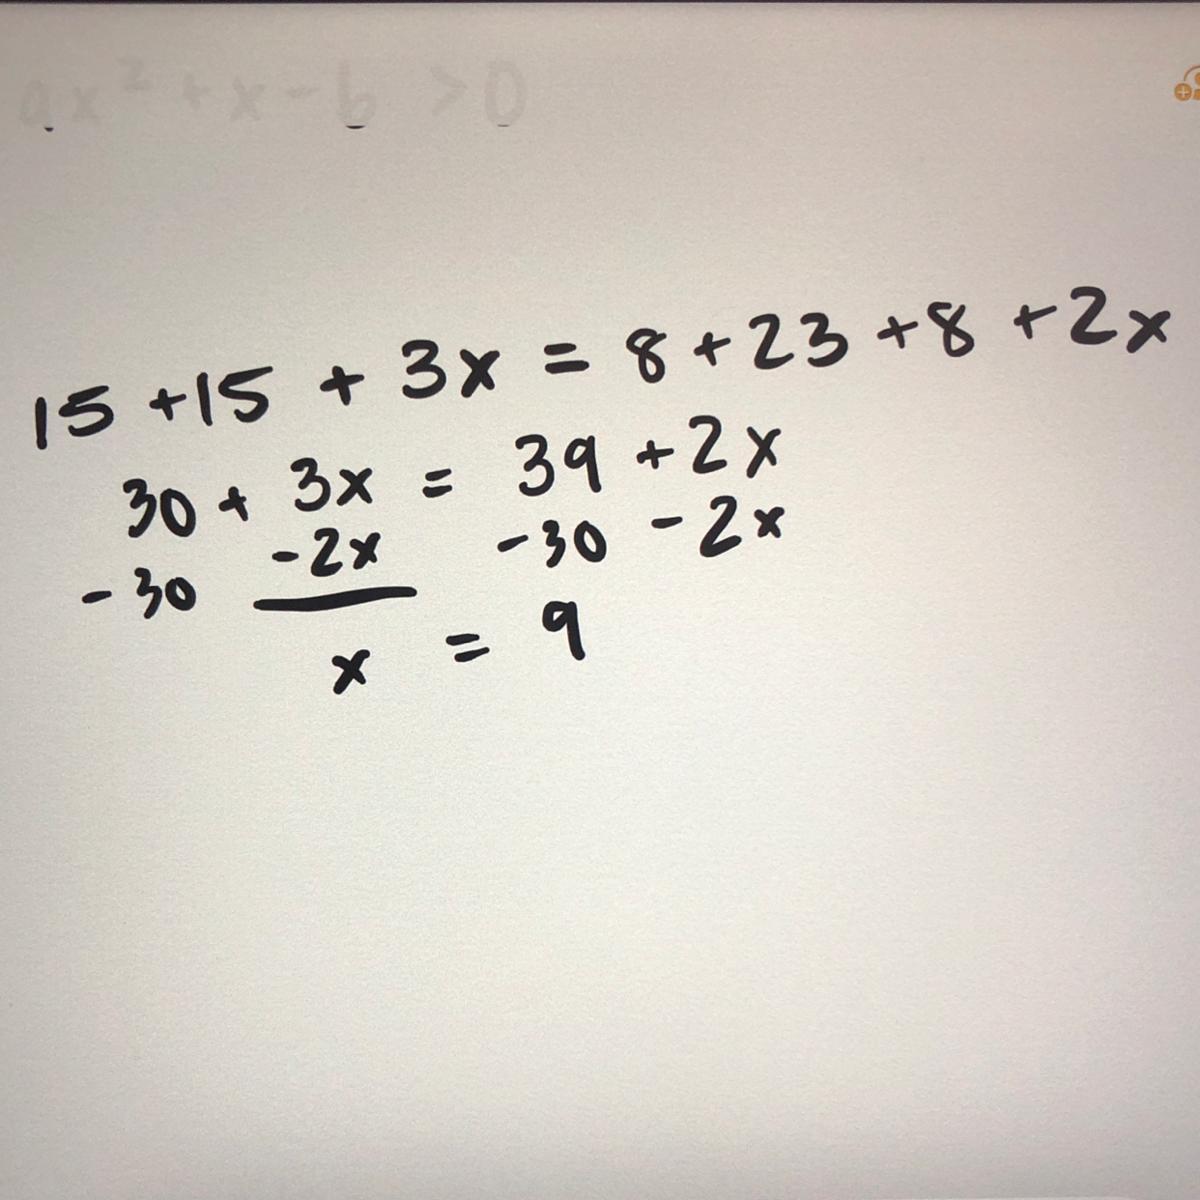 ax² + x - b > 0
15 + 15 + 3x = 8 + 23 + 8 + 2x
30 + 3x = 39 + 2x
- 30 - 2x - 30 - 2x
x = 9